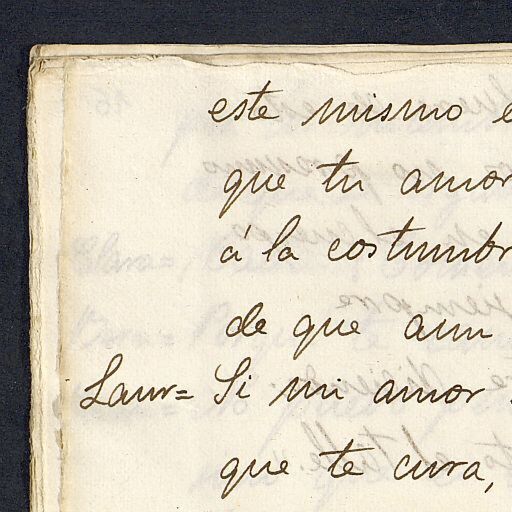 este mismo e
que tu amor
á la costumbr
de que aun
Laur= Si mi amor
que te cura,